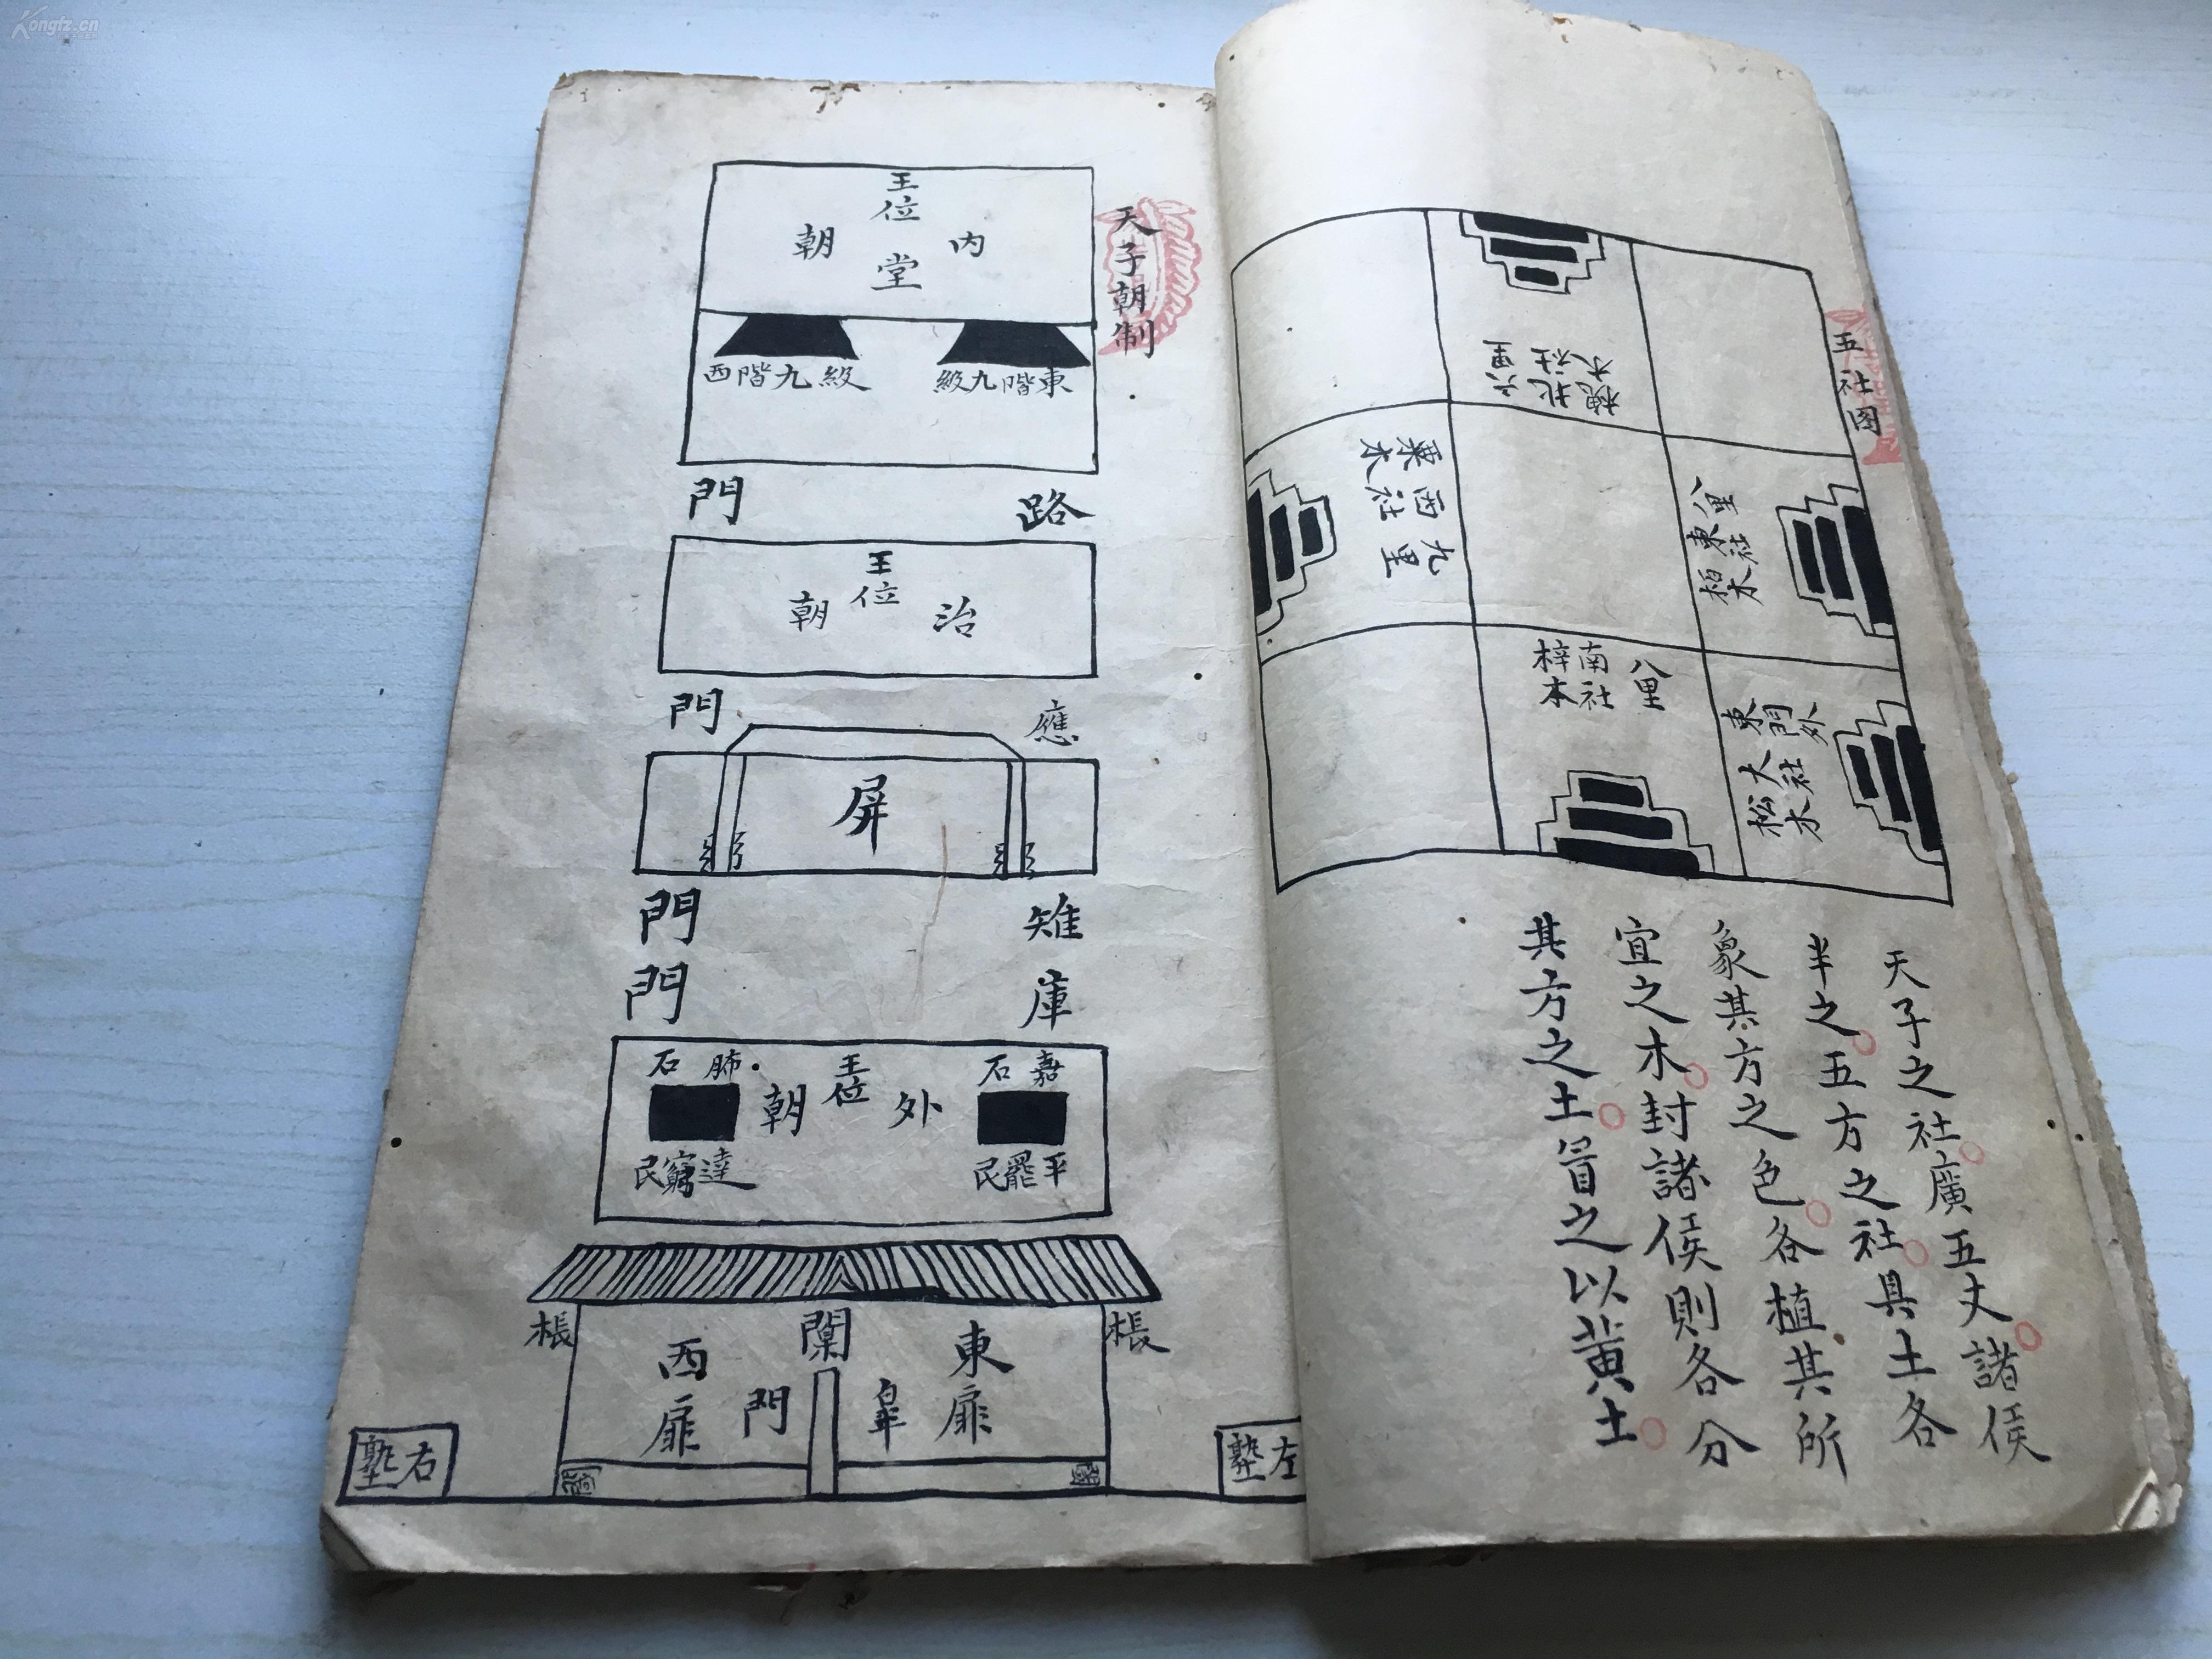 Kongfz.cn
五社图
六里
北社
槐木
八里
東社
柏木
九里
西社
栗木
八里
南社
梓本
東門外
大社
松木
天子之社廣五丈諸侯
半之五方之社具土各
象其方之色各植其所
宜之木封諸侯則各分
其方之土冒之以黄土
天子朝制
王位
内朝
堂
東階九級
西階九級
路門
王位
治朝
應門
屏
雉門
庫門
嘉石
王位
外朝
肺石
平罷民
達窮民
棖
闑
棖
東扉
西扉
皐門
左塾
右塾